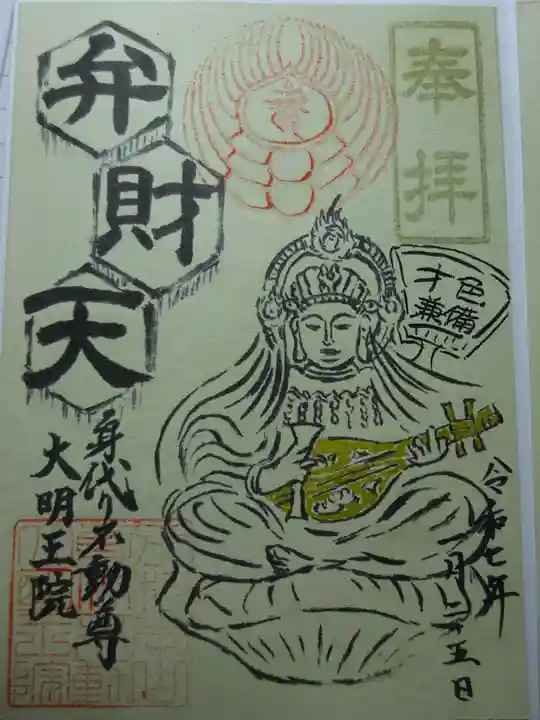 奉拝
弁財天
才色
兼備
身代り不動尊
大明王院
令和七年
一月二十五日